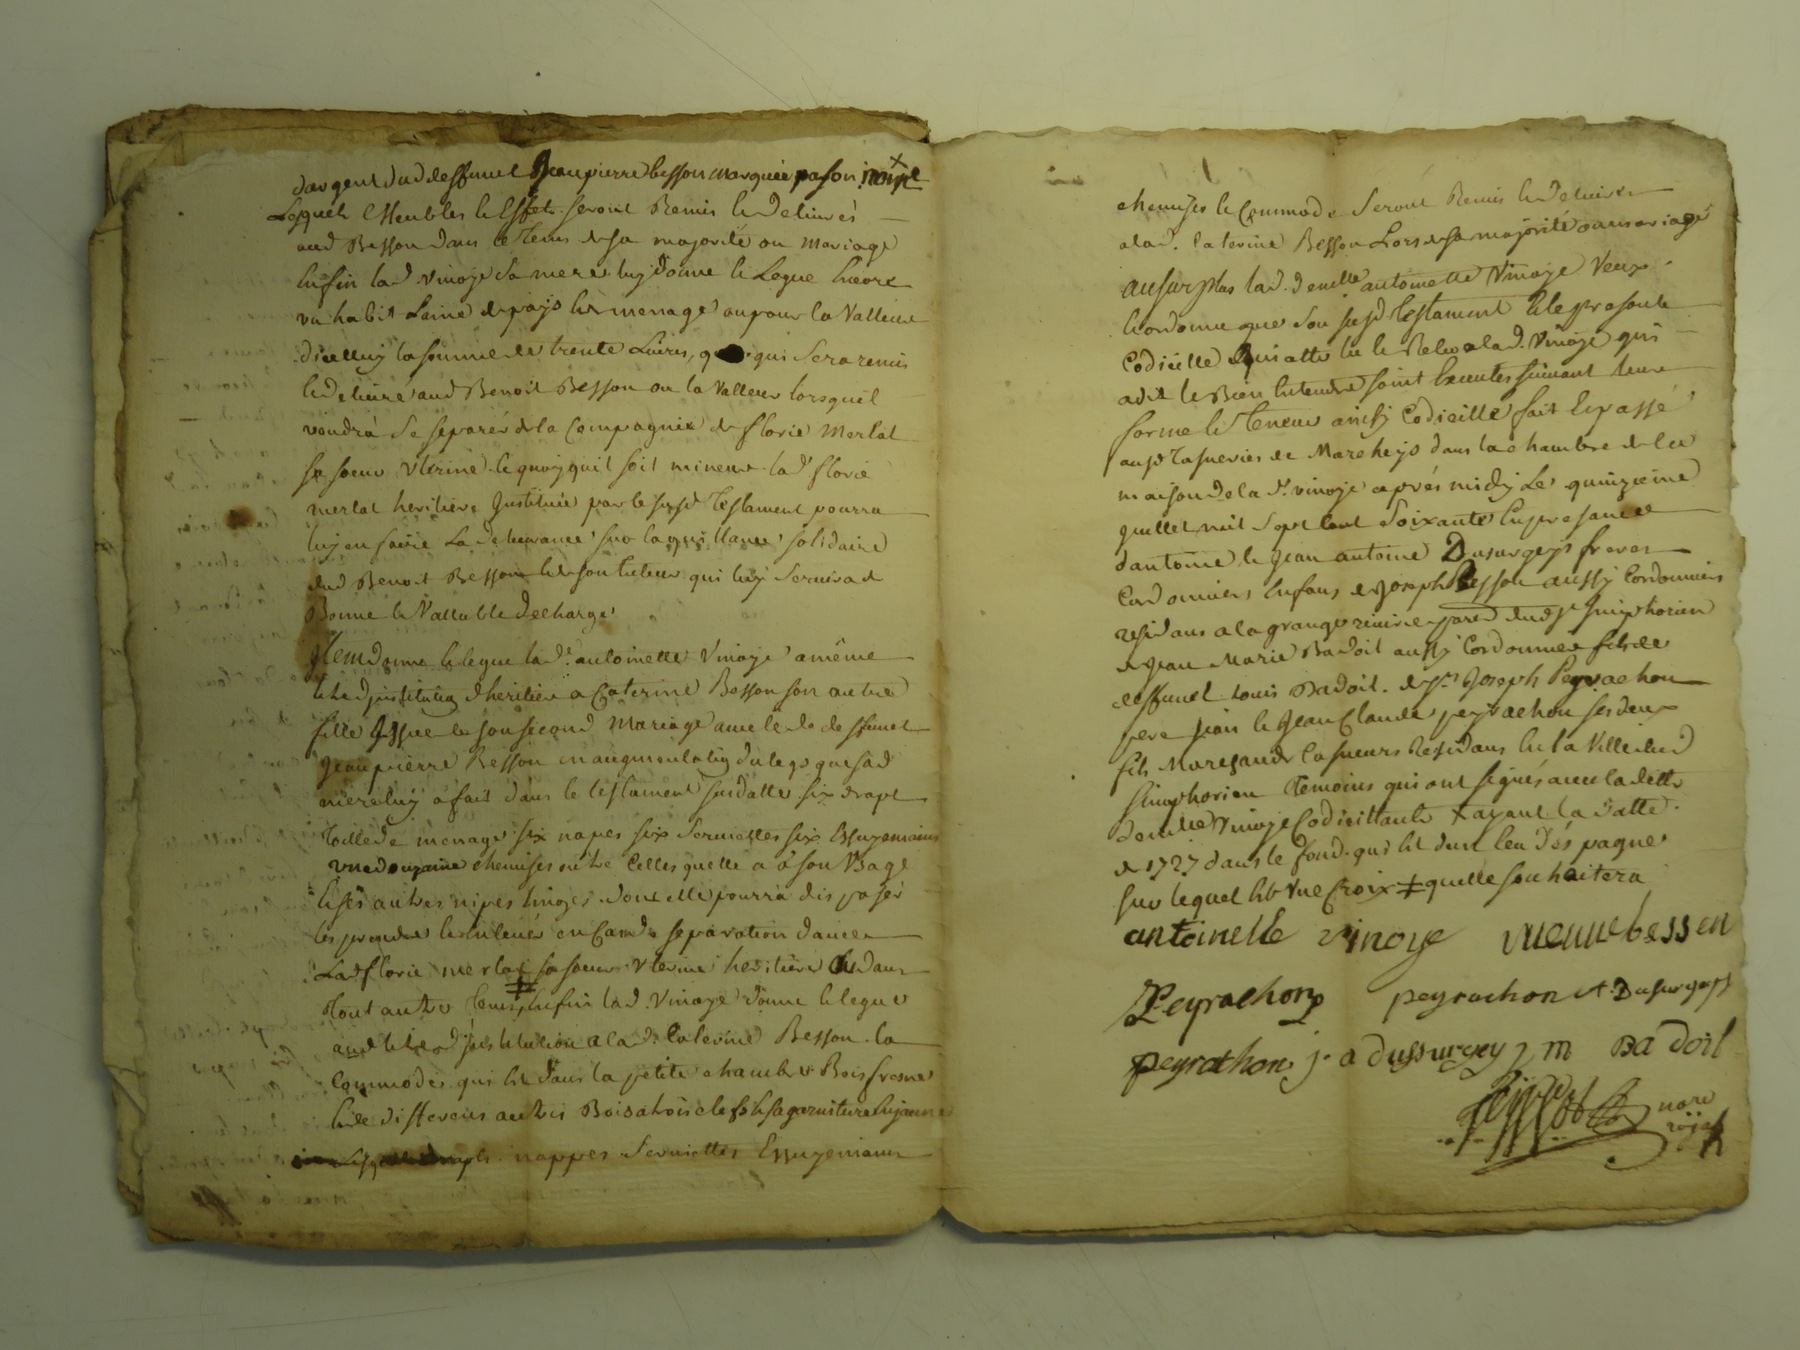 dargent dud deffunct Jean pierre besson marquée pa son nom
Lesquels Meubles & Effets seront Remis & delivrés
aud Besson dans le tems de sa majorité ou Mariage
Enfin lad vinoye sa mere luy donne & Legue Encore
un habit Laine de pays & menage ou pour la Valleur
dicelluy la somme de trente Livres, qui sera remis
& delivré aud Benoit Besson ou la valleur lorsquil
voudra se separér de la Compagnie de florie Merlat
sa soeur uterine & quoy quil soit mineur lad florie
merlat heritiere Instituée par le susd testament pourra
luy en faire la delivrance sur la quittance solidaire
dud Benoit Besson & de son tuteur qui luy servira de
Bonne & Vallable decharge
Item donne & legue lad.e antoinette Vinoye a même
titre d'institution d'heritiere a Caterine Besson son autre
fille Issue de son second Mariage avec led deffunct
Jean pierre Besson en augmentation du legs que sad
mere luy a fait dans le testament susdatté six draps
toille de menage six napes six serviettes six Essuyemains
une douzaine chemises outre Celles quelle a à son Usage
& ses autres nipes linges dont elle pourra disposér
les prendre & enlever en Cas de separation davec
Lad florie merlat sa soeur uterine heritiere & dans
tout autre tems, Enfin lad. Vinoye donne & legue
aud titre d'institution a lad. Caterine Besson la
Commode qui est dans la petite chambre Bois fresne
& de differens autres Bois a trois clefs & sa garniture En jaune
nappes serviettes Essuyemains
chemises & Commode Seront Remis & delivrés
a lad. Caterine Besson Lors de sa majorité ou mariage
au surplus lad. demelle antoinette Vinoye veux
& ordonne que son susd testament & le present
Codicille Qui a été lu & Relu a lad. Vinoye qui
a dit le Bien Entendre soint Executés suivant leur
forme & teneur ainsy Codicillé fait & passé
aux d tasneries de Marcheys dans la chambre de la
maison de la d. vinoye aprés midy Le quinzieme
Juillet mil sept cent soixante En presence
dantoine & Jean antoine Dusurgeys freres
Cordonniers Enfans de Joseph Besson aussy Cordonniers
residans a la grange paroisse dud st simphorien
de Jean Marie Badoil aussy Cordonnier fils de
deffunct Louis Badoil. de sr. Joseph Peyrachon
pere & Jean Claude peyrachon ses deux
fils Marchands tasneurs Residans En la Ville dud
simphorien temoins qui ont signés avec la ditte
demelle Vinoye Codicillante ayant la datte
de 1727 dans le fond qui est dun leu déspagne
sur lequel est une Croix ‡ quelle souhaitera
antoinette vinoye vueuue besson
J Peyrachon peyrachon A. Dusurgeys
peyrachon j. a dussurgey j m Badoil
nore
royal